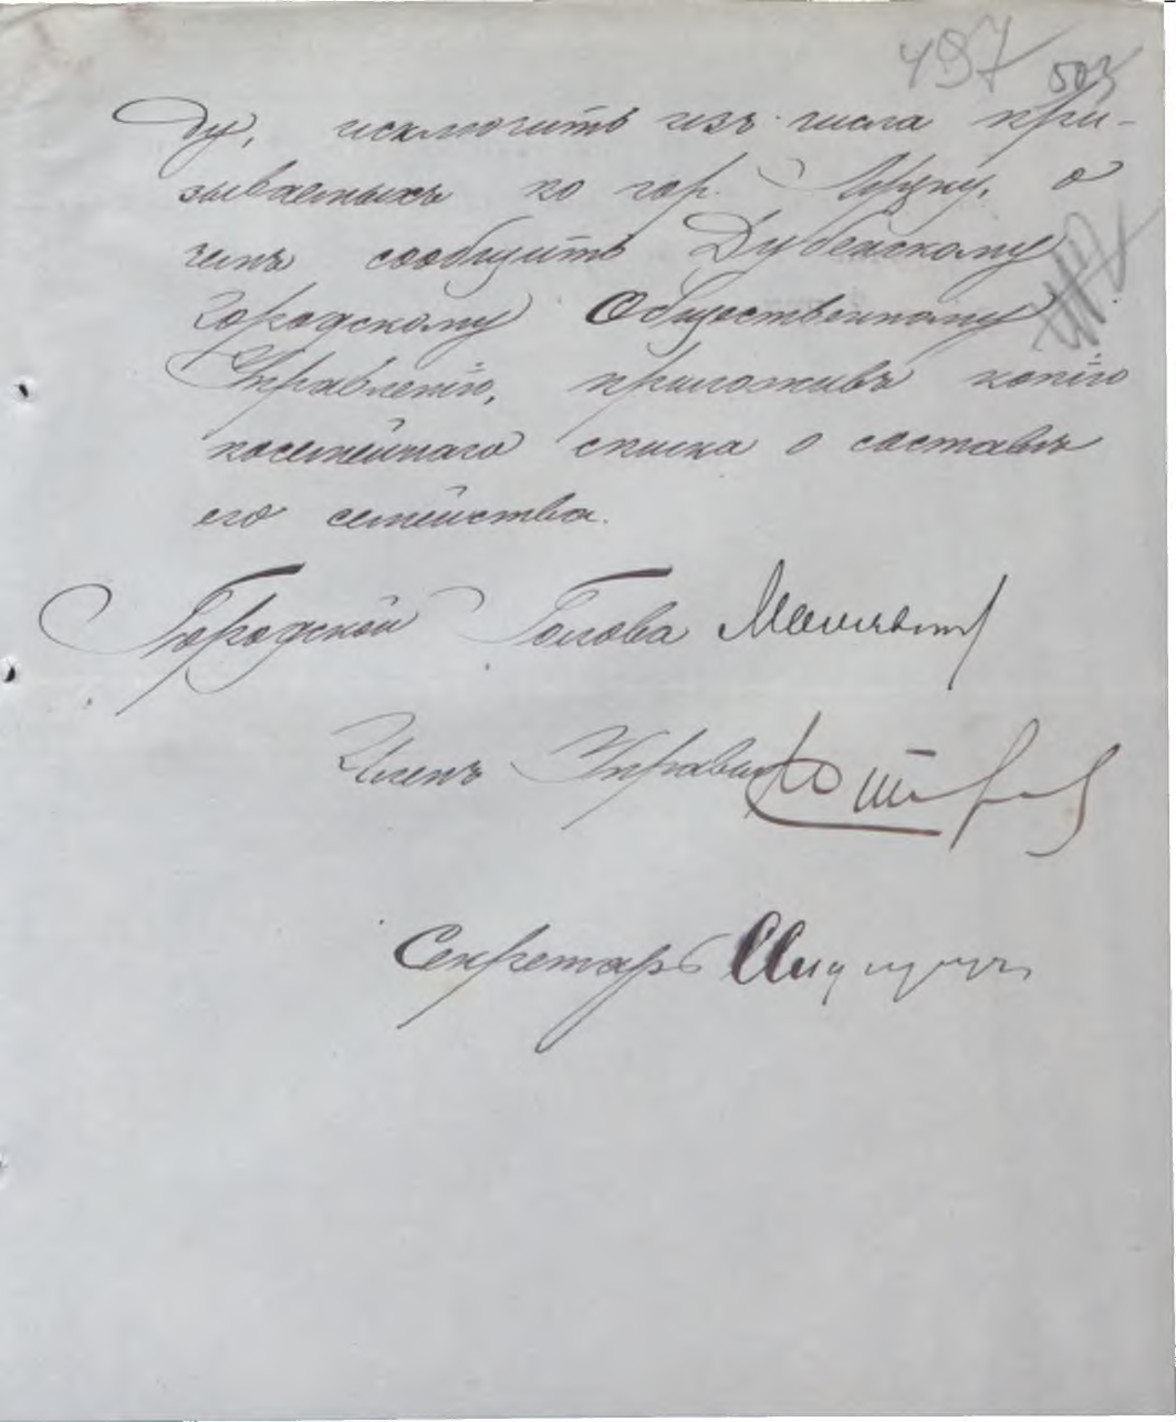 497 503
ду, исключить изъ числа при-
зываемыхъ по гор. Луцку, о
чемъ сообщить Дубенскому
Городскому Общественному
Управленію, приложивъ копію
посемейнаго списка о составѣ
его семейства.
Городской Голова
Членъ Управы
Секретарь